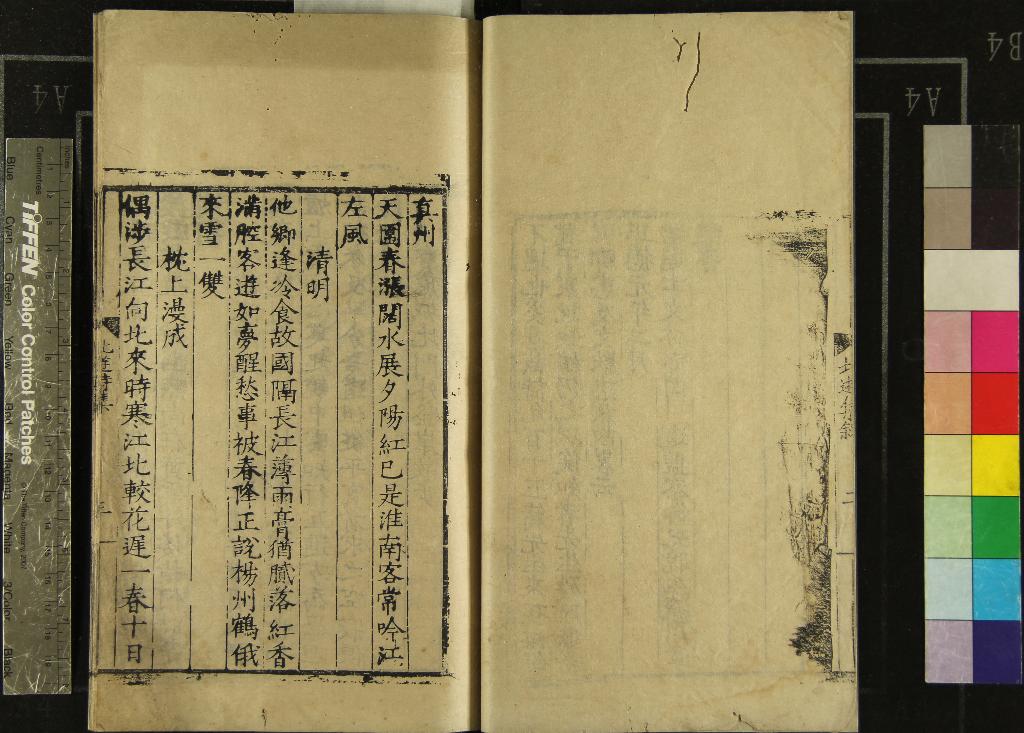 真州
天圍春漲闊水展夕陽紅已是淮南客常吟江
左風
清明
他鄉逢冷食故國隔長江薄雨膏猶膩落紅香
滿腔客遊如夢醒愁事被春降正說楊州鶴俄
來雪一雙
枕上漫成
偶涉長江向北來時寒江北較花遲一春十日
二
B4
A4
A4
TIFFEN Color Control Patches
Centimetres
Inches
Blue
Cyan
Green
Yellow
Red
Magenta
White
3/Color
Black